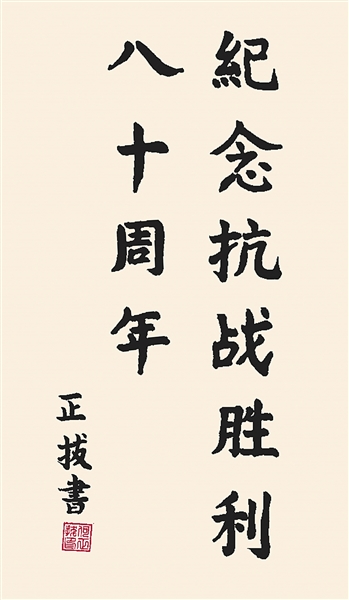 紀念抗战胜利
八十周年
正拔書